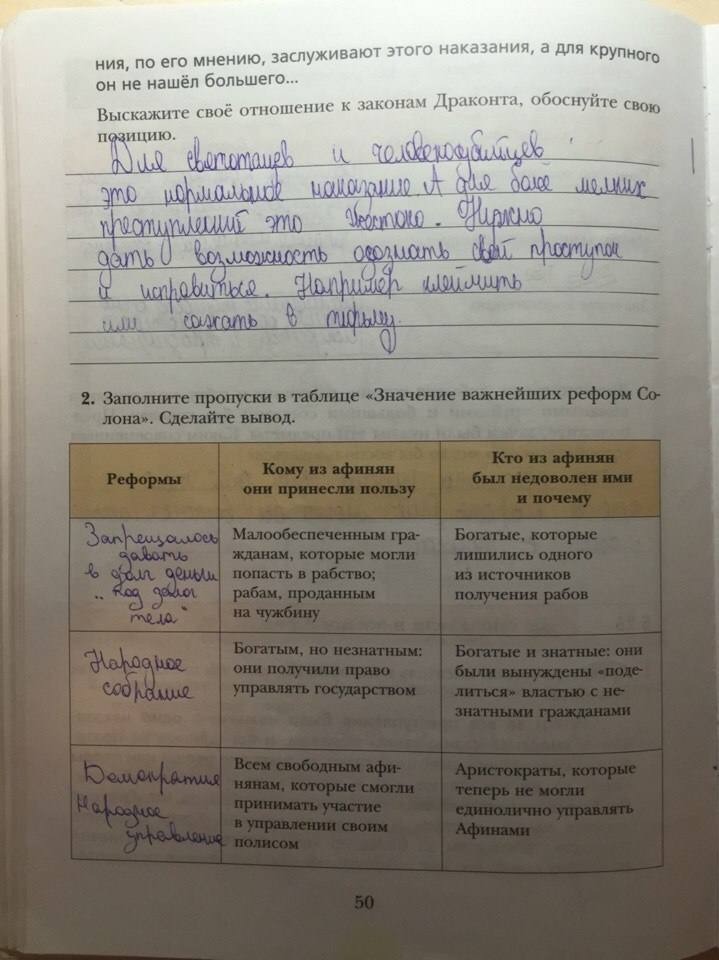 ния, по его мнению, заслуживают этого наказания, а для крупного
он не нашёл большего...
Выскажите своё отношение к законам Драконта, обоснуйте свою
позицию.
Для святотацев и человекоубийцев
это нормальное наказание. А для более мелких
преступлений это жестоко. Нужно
дать возможность осознать свой проступок
и исправиться. Например клеймить
или сажать в тюрьму.
2. Заполните пропуски в таблице «Значение важнейших реформ Со-
лона». Сделайте вывод.
Реформы
Кому из афинян
они принесли пользу
Кто из афинян
был недоволен ими
и почему
Запрещалось
давать
в долг деньги
"под залог
тела"
Малообеспеченным гра-
жданам, которые могли
попасть в рабство;
рабам, проданным
на чужбину
Богатые, которые
лишились одного
из источников
получения рабов
Народное
собрание
Богатым, но незнатным:
они получили право
управлять государством
Богатые и знатные: они
были вынуждены «поде-
литься» властью с не-
знатными гражданами
Демократия
Народное
управление
Всем свободным афи-
нянам, которые смогли
принимать участие
в управлении своим
полисом
Аристократы, которые
теперь не могли
единолично управлять
Афинами
50